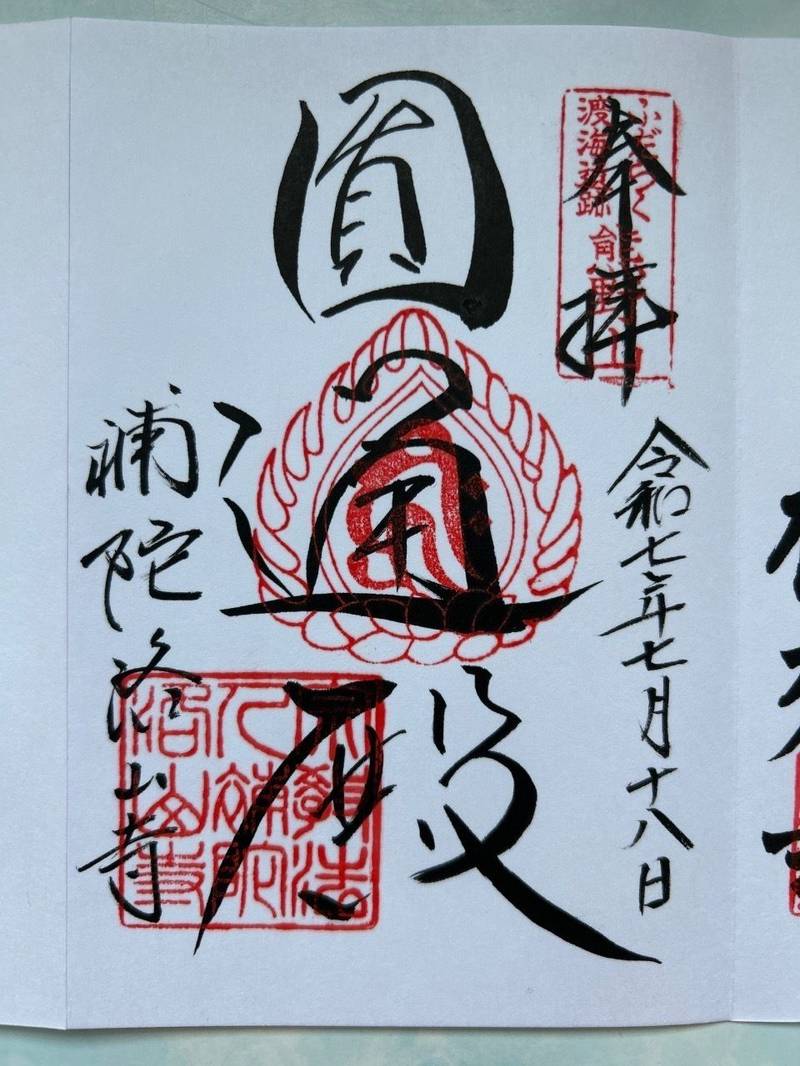 奉拝
ふだらく
渡海遺跡
熊野山
令和七年七月十八日
圓通殿
補陀洛山寺